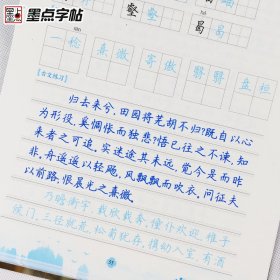 墨点字帖
一稔
熹微
寄傲
翳翳
盘桓
【古文练习】
归去来兮,田园将芜胡不归?既自以心
为形役,奚惆怅而独悲?悟已往之不谏,知
来者之可追。实迷途其未远,觉今是而昨
非。舟遥遥以轻飏,风飘飘而吹衣。问征夫
以前路,恨晨光之熹微。
乃瞻衡宇,载欣载奔。僮仆欢迎,稚子
候门。三径就荒,松菊犹存。携幼入室,有酒